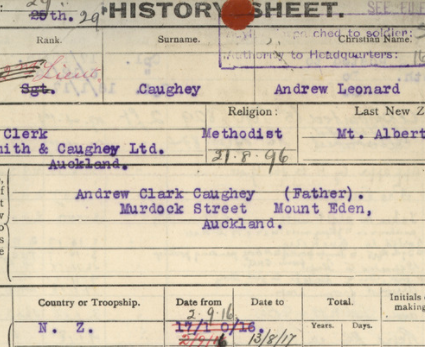 29
25th. 29 HISTORY SHEET. SEE FILE
ched to soldier:
Rank. Surname. Christian Name.
Authority to Headquarters: 16
Lieut.
Sgt. Caughey Andrew Leonard
Religion: Last New Z
Clerk Methodist Mt. Albert
ith & Caughey Ltd. 21-8-96
Auckland.
Andrew Clark Caughey (Father).
Murdock Street Mount Eden,
Auckland.
Country or Troopship. Date from Date to Total. Initials
making
2-9-16
Years. Days.
N. Z. 17/1 0/16. 13/8/17
2/9/16